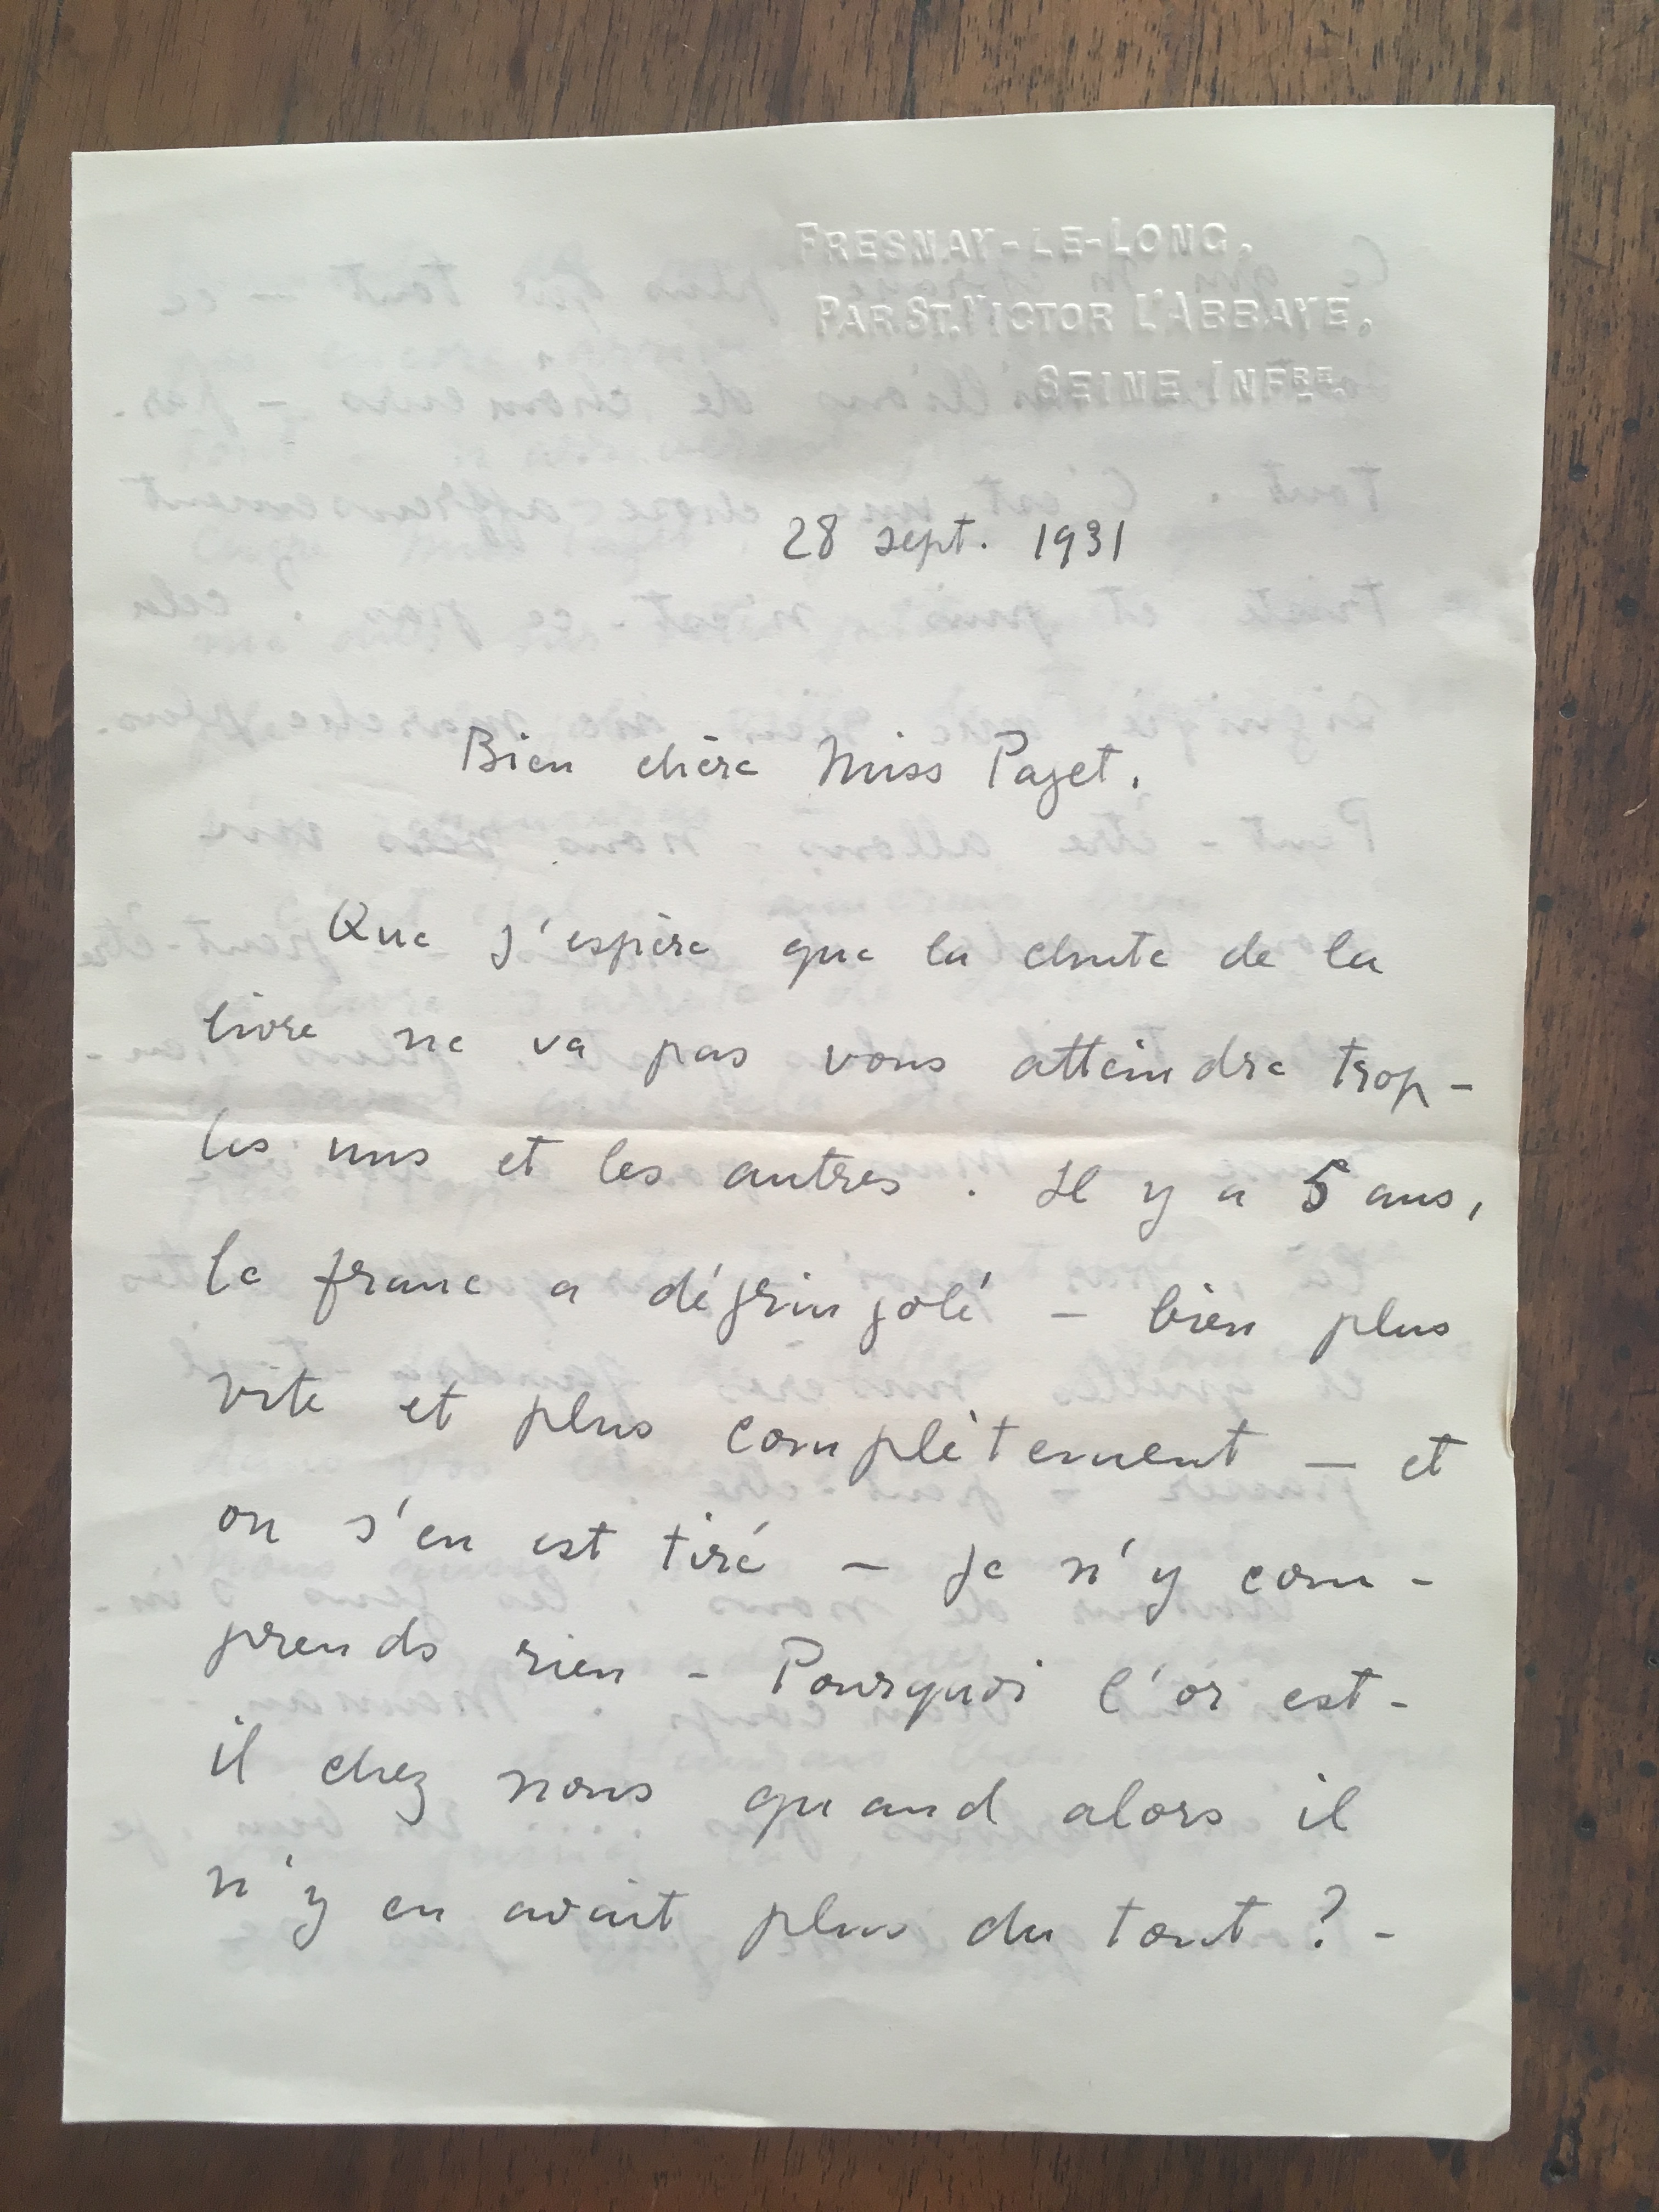 FRESNAY-LE-LONG.
PAR ST. VICTOR L'ABBAYE.
SEINE INFRE.
28 sept. 1931
Bien chère Miss Paget.
Que j'espère que la chute de la
livre ne va pas vous atteindre trop -
les uns et les autres. Il y a 5 ans,
le franc a dégringolé - bien plus
vite et plus complètement - et
on s'en est tiré - je n'y com-
prends rien - Pourquoi l'or est-
il chez nous quand alors il
n'y en avait plus du tout ? -